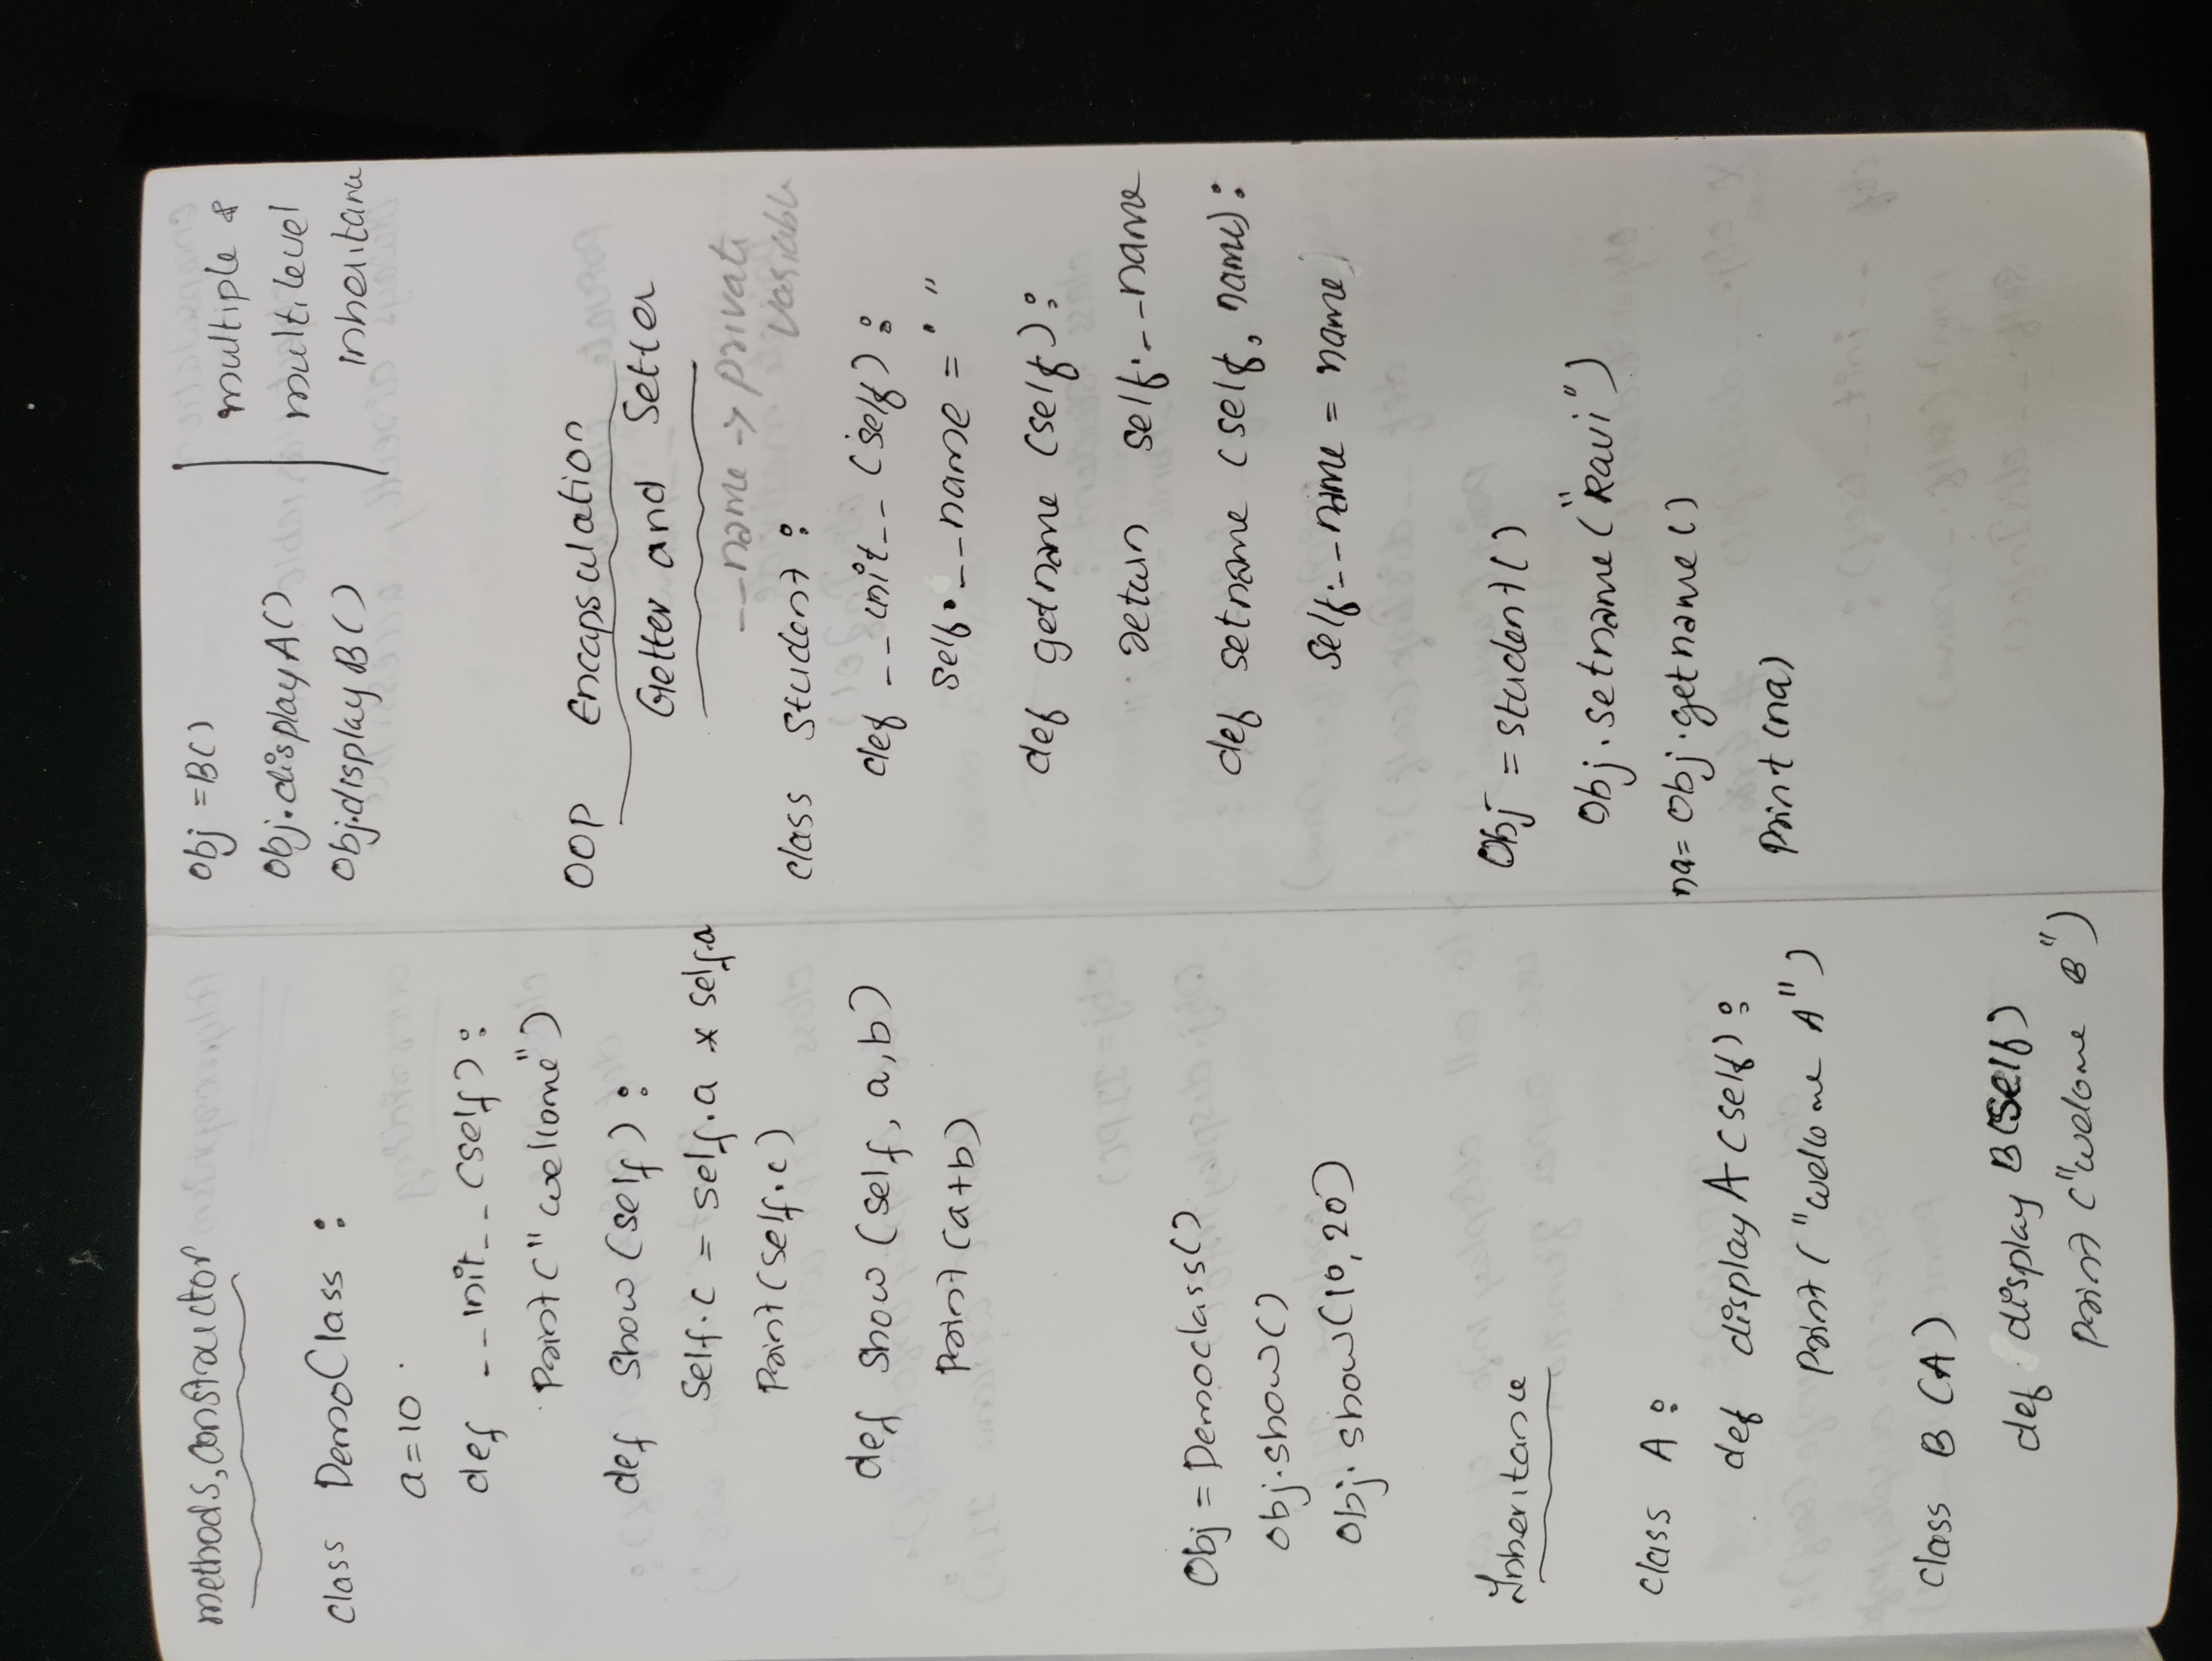 methods, constructor
class DemoClass :
a=10
def __init__(self):
Print("wellcome")
def show(self):
Self.c = self.a * self.a
Print(self.c)
def show(self, a,b)
Print(a+b)
Obj = Democlass()
obj.show()
Obj.show(10,20)
Inheritance
class A:
def displayA(self):
Print("wellcome A")
class B(A)
def displayB(self)
Print("welcome B")
Obj = B()
Obj.displayA()
Obj.displayB()
multiple &
multilevel
OOP Encapsulation
Getter and Setter
__name -> private
variable
class student:
def __init__(self):
self.__name = " "
def getname(self):
return self.__name
def setname(self, name):
self.__name = name
Obj = student()
Obj.setname("Ravi")
na= Obj.getname()
Print(na)